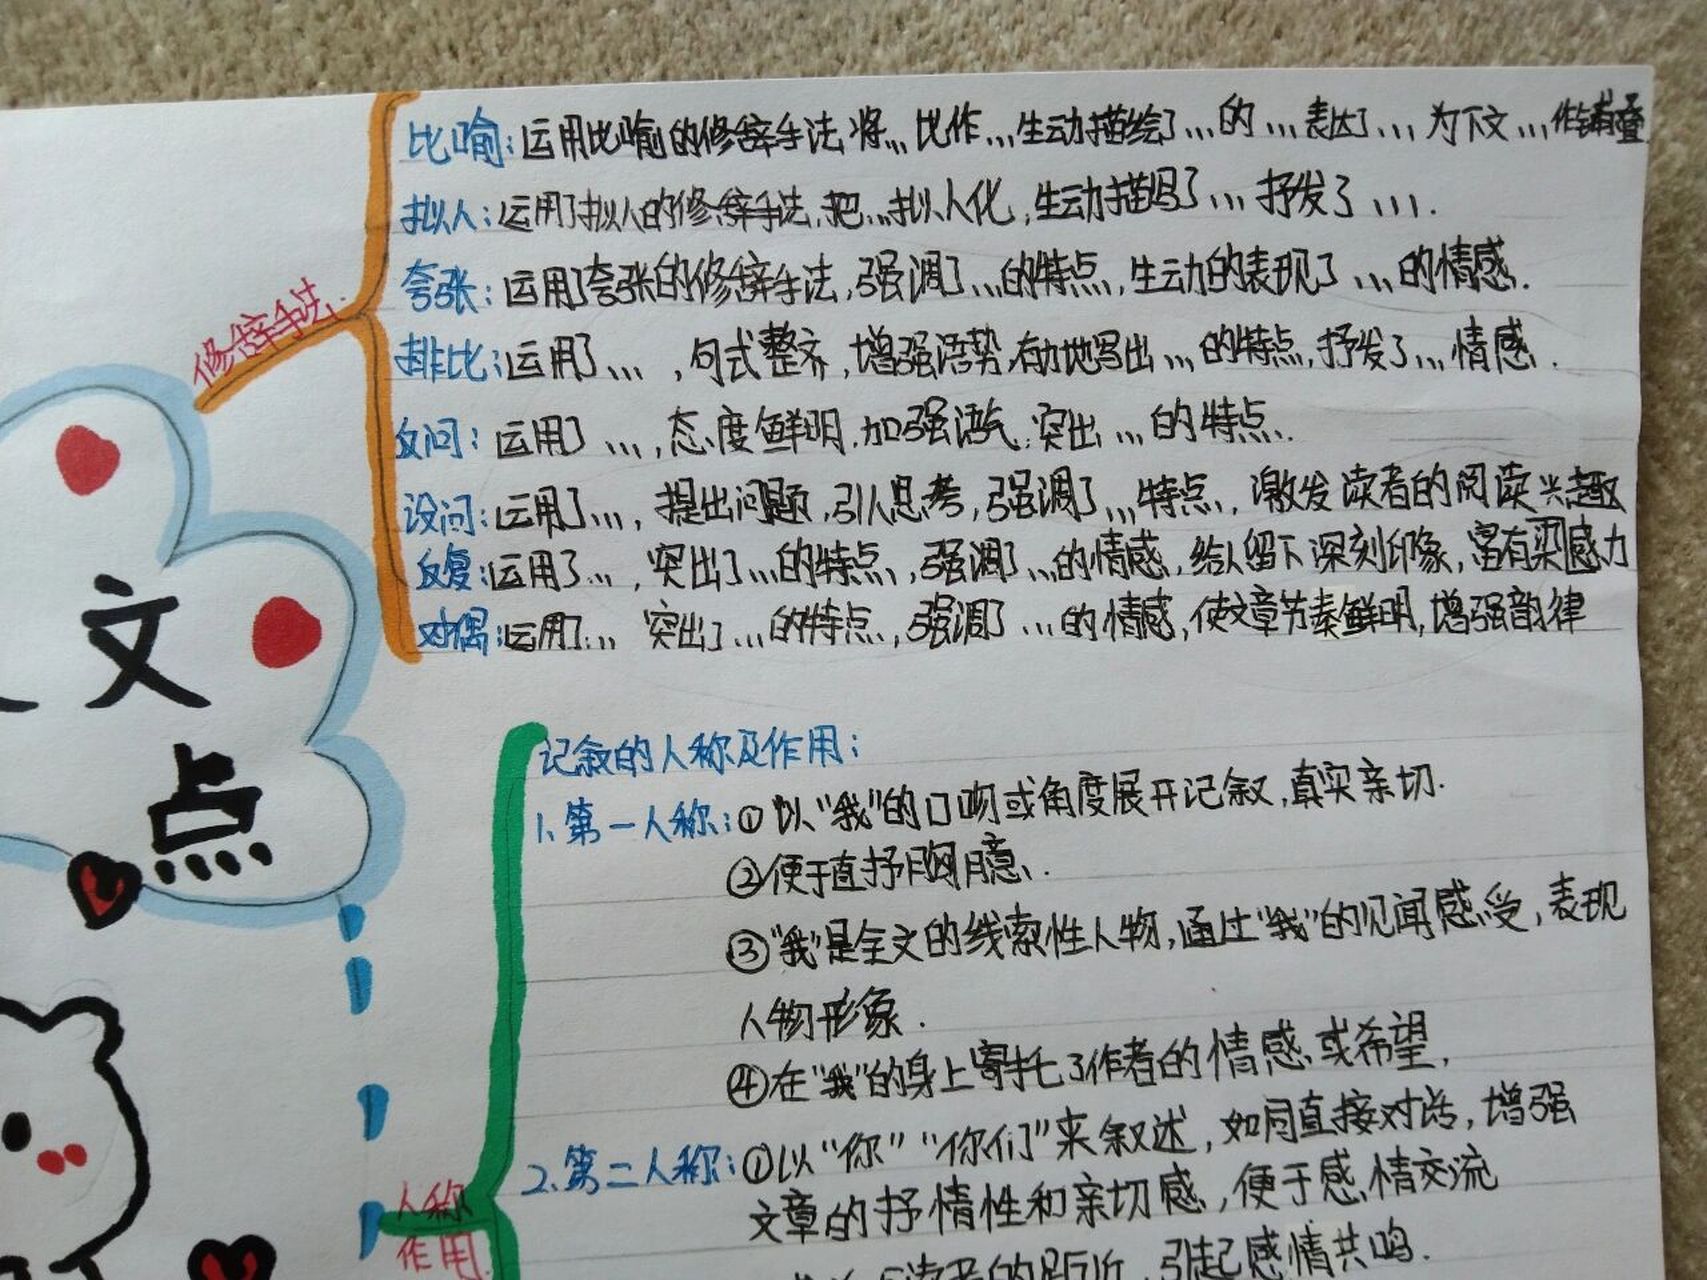 比喻：运用比喻的修辞手法,将...比作...生动描绘了...的...表达了...为下文...作铺叠
拟人：运用了拟人的修辞手法,把...拟人化,生动描写了...抒发了....
夸张：运用了夸张的修辞手法,强调了...的特点,生动的表现了...的情感.
排比：运用了...,句式整齐,增强语势,有力地写出...的特点,抒发了...情感.
反问：运用了...,态度鲜明,加强语气,突出...的特点.
设问：运用了...,提出问题,引人思考,强调了...特点,激发读者的阅读兴趣
反复：运用了...,突出了...的特点,强调了...的情感,给人留下深刻印象,富有感力
对偶：运用了...突出了...的特点,强调了...的情感,使文章节奏鲜明,增强韵律
修辞手法
文
点
记叙的人称及作用：
1.第一人称：①以“我”的口吻或角度展开记叙,真实亲切.
②便于直抒胸臆.
③“我”是全文的线索性人物,通过“我”的见闻感受,表现
人物形象.
④在“我”的身上寄托了作者的情感或希望,
2.第二人称：①以“你”“你们”来叙述,如同直接对话,增强
文章的抒情性和亲切感,便于感情交流
读者的距近,引起感情共鸣.
人称
作用